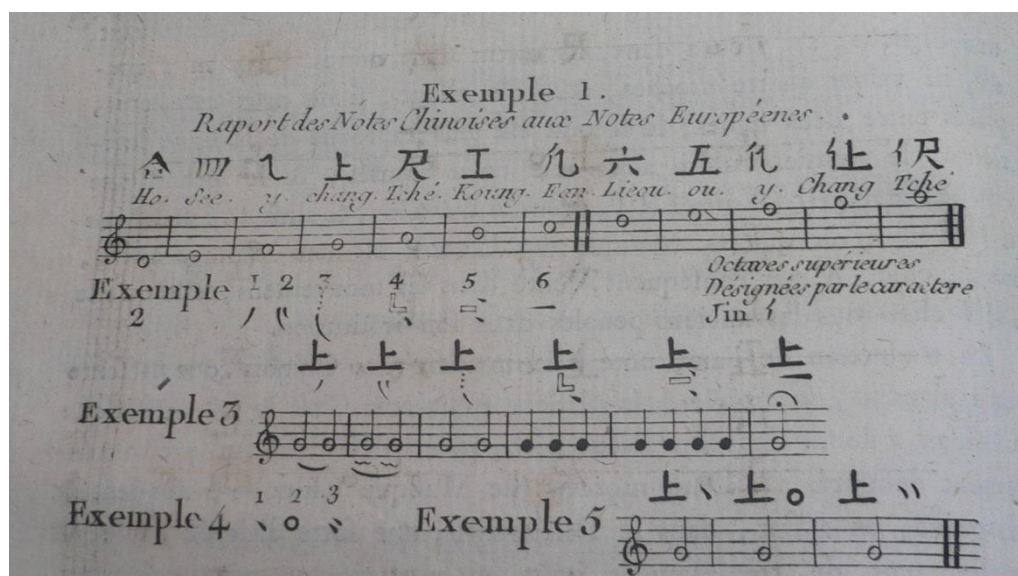 Exemple 1.
Raport des Notes Chinoises aux Notes Européenes.
合 四 乁 上 尺 工 凡 六 五 亿 仩 伬
Ho. See. y. chang. Tché. Koung. Fan. Lieou. ou. y. Chang Tché
Octaves supérieures
Désignées par le caractere
Jin 亻
Exemple 1 2 3 4 5 6
2
上 上 上 上 上 上
Exemple 3
1 2 3
Exemple 4
Exemple 5
上 上 上